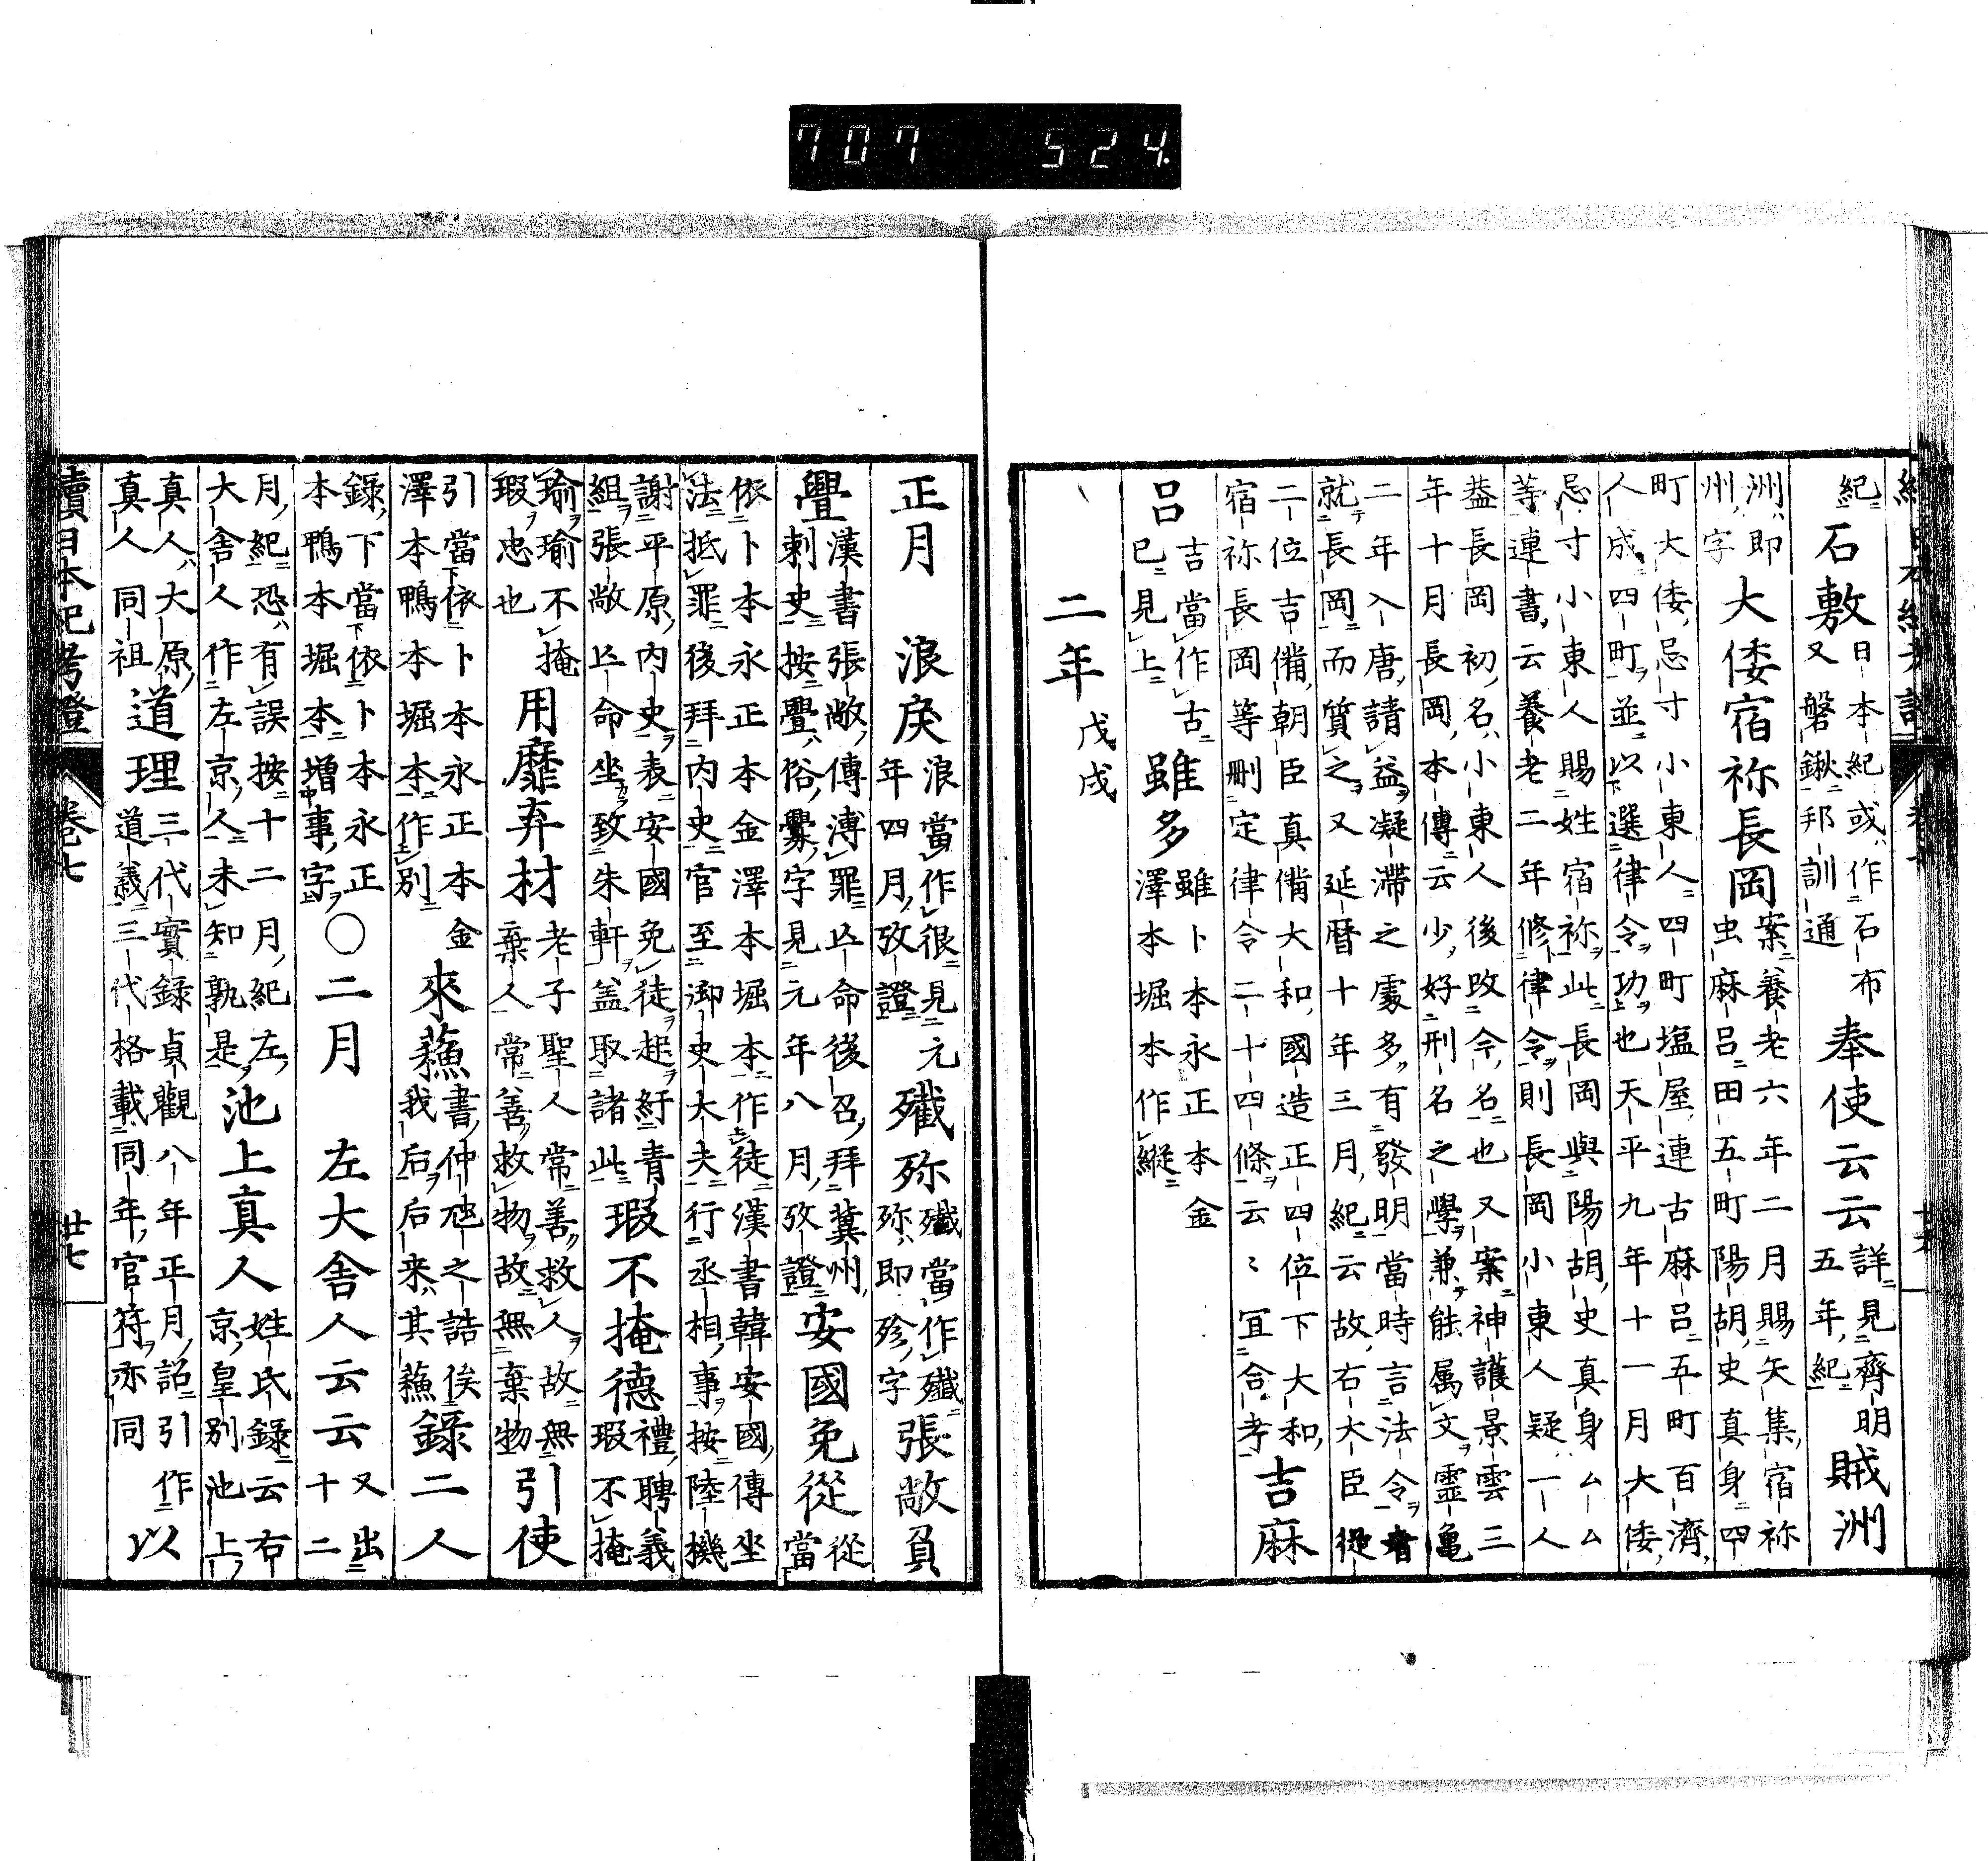 707 524
紀 石敷 日本紀或作石布 又磐鍬邦訓通 奉使云云 詳見齊明 五年紀 賊洲
洲即 州字 大倭宿祢長岡 案養老六年二月賜矢集宿祢 虫麻呂田五町陽胡史真身四
町大倭忌寸小東人四町塩屋連古麻呂五町百濟 人成四町並以選律令功也天平九年十一月大倭
忌寸小東人賜姓宿祢此長岡與陽胡史真身ムム 等連書云養老二年修律令則長岡小東人疑一人
葢長岡初名小東人後改今名也又案神護景雲三 年十月長岡本傳云少好刑名之學兼能属文靈亀
二年入唐請益凝滯之處多有發明當時言法令者 就長岡而質之又延暦十年三月紀云故右大臣從
二位吉備朝臣真備大和國造正四位下大和 宿祢長岡等刪定律令二十四條云〻冝合考 吉麻
呂 吉當作古 已見上 雖多 雖卜本永正本金 澤本堀本作縱
二年 戊戌
正月 浪戾 浪當作很見元 年四月攷證 殱殄 殱當作殲 殄即殄字 張敞負
舋 漢書張敞傳溥罪亾命後召拜冀州 刺史按舋俗釁字見元年八月攷證 安國免從 從 當
依卜本永正本金澤本堀本作徒漢書韓安國傳坐 法抵罪後拜内史官至御史大夫行丞相事按陸機
謝平原内史表安國免徒起紆青 組張敞亾命坐致朱軒葢取諸此 瑕不掩德 禮聘義 瑕不掩
瑜瑜不掩 瑕忠也 用靡弃材 老子聖人常善救人故無 棄人常善救物故無棄物 引使
引當依卜本永正本金 澤本鴨本堀本作別 來蘓 書仲虺之誥俟 我后后来其蘓 錄二人
錄下當依卜本永正 本鴨本堀本增事字 ○二月 左大舍人云云 又出 十二
月紀恐有誤按十二月紀左 大舍人作左京人未知孰是 池上真人 姓氏録云右 京皇別池上
真人大原 真人同祖 道理 三代實録貞觀八年正月詔引作 道義三代格載同年官符亦同 以
續日本紀考證 卷七 廿七